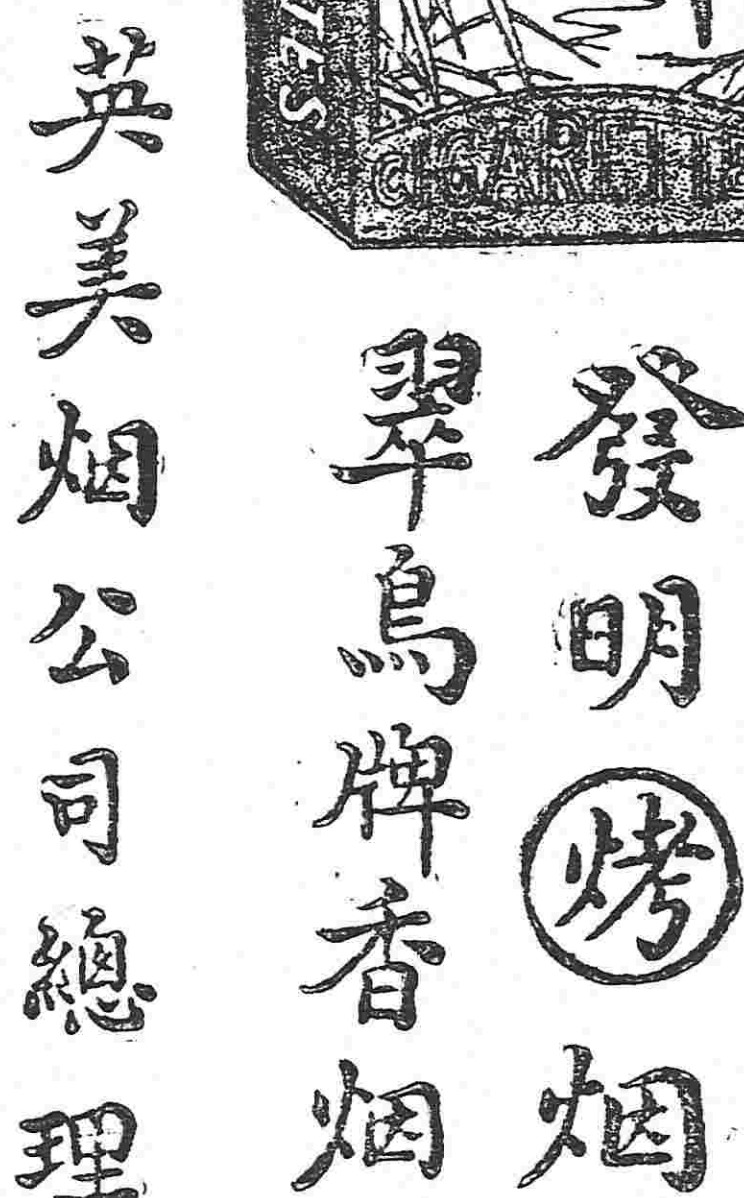 TES
CIGARETTE
發明烤烟
翠鳥牌香烟
英美烟公司總理